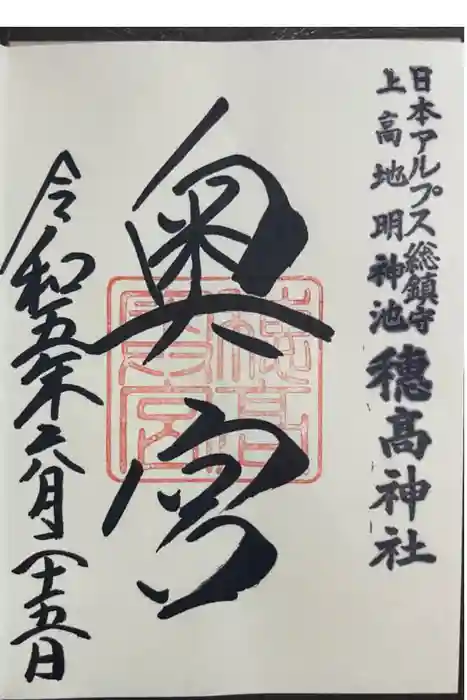 日本アルプス総鎮守
上高地明神池 穂高神社
奥宮
令和五年六月二十五日